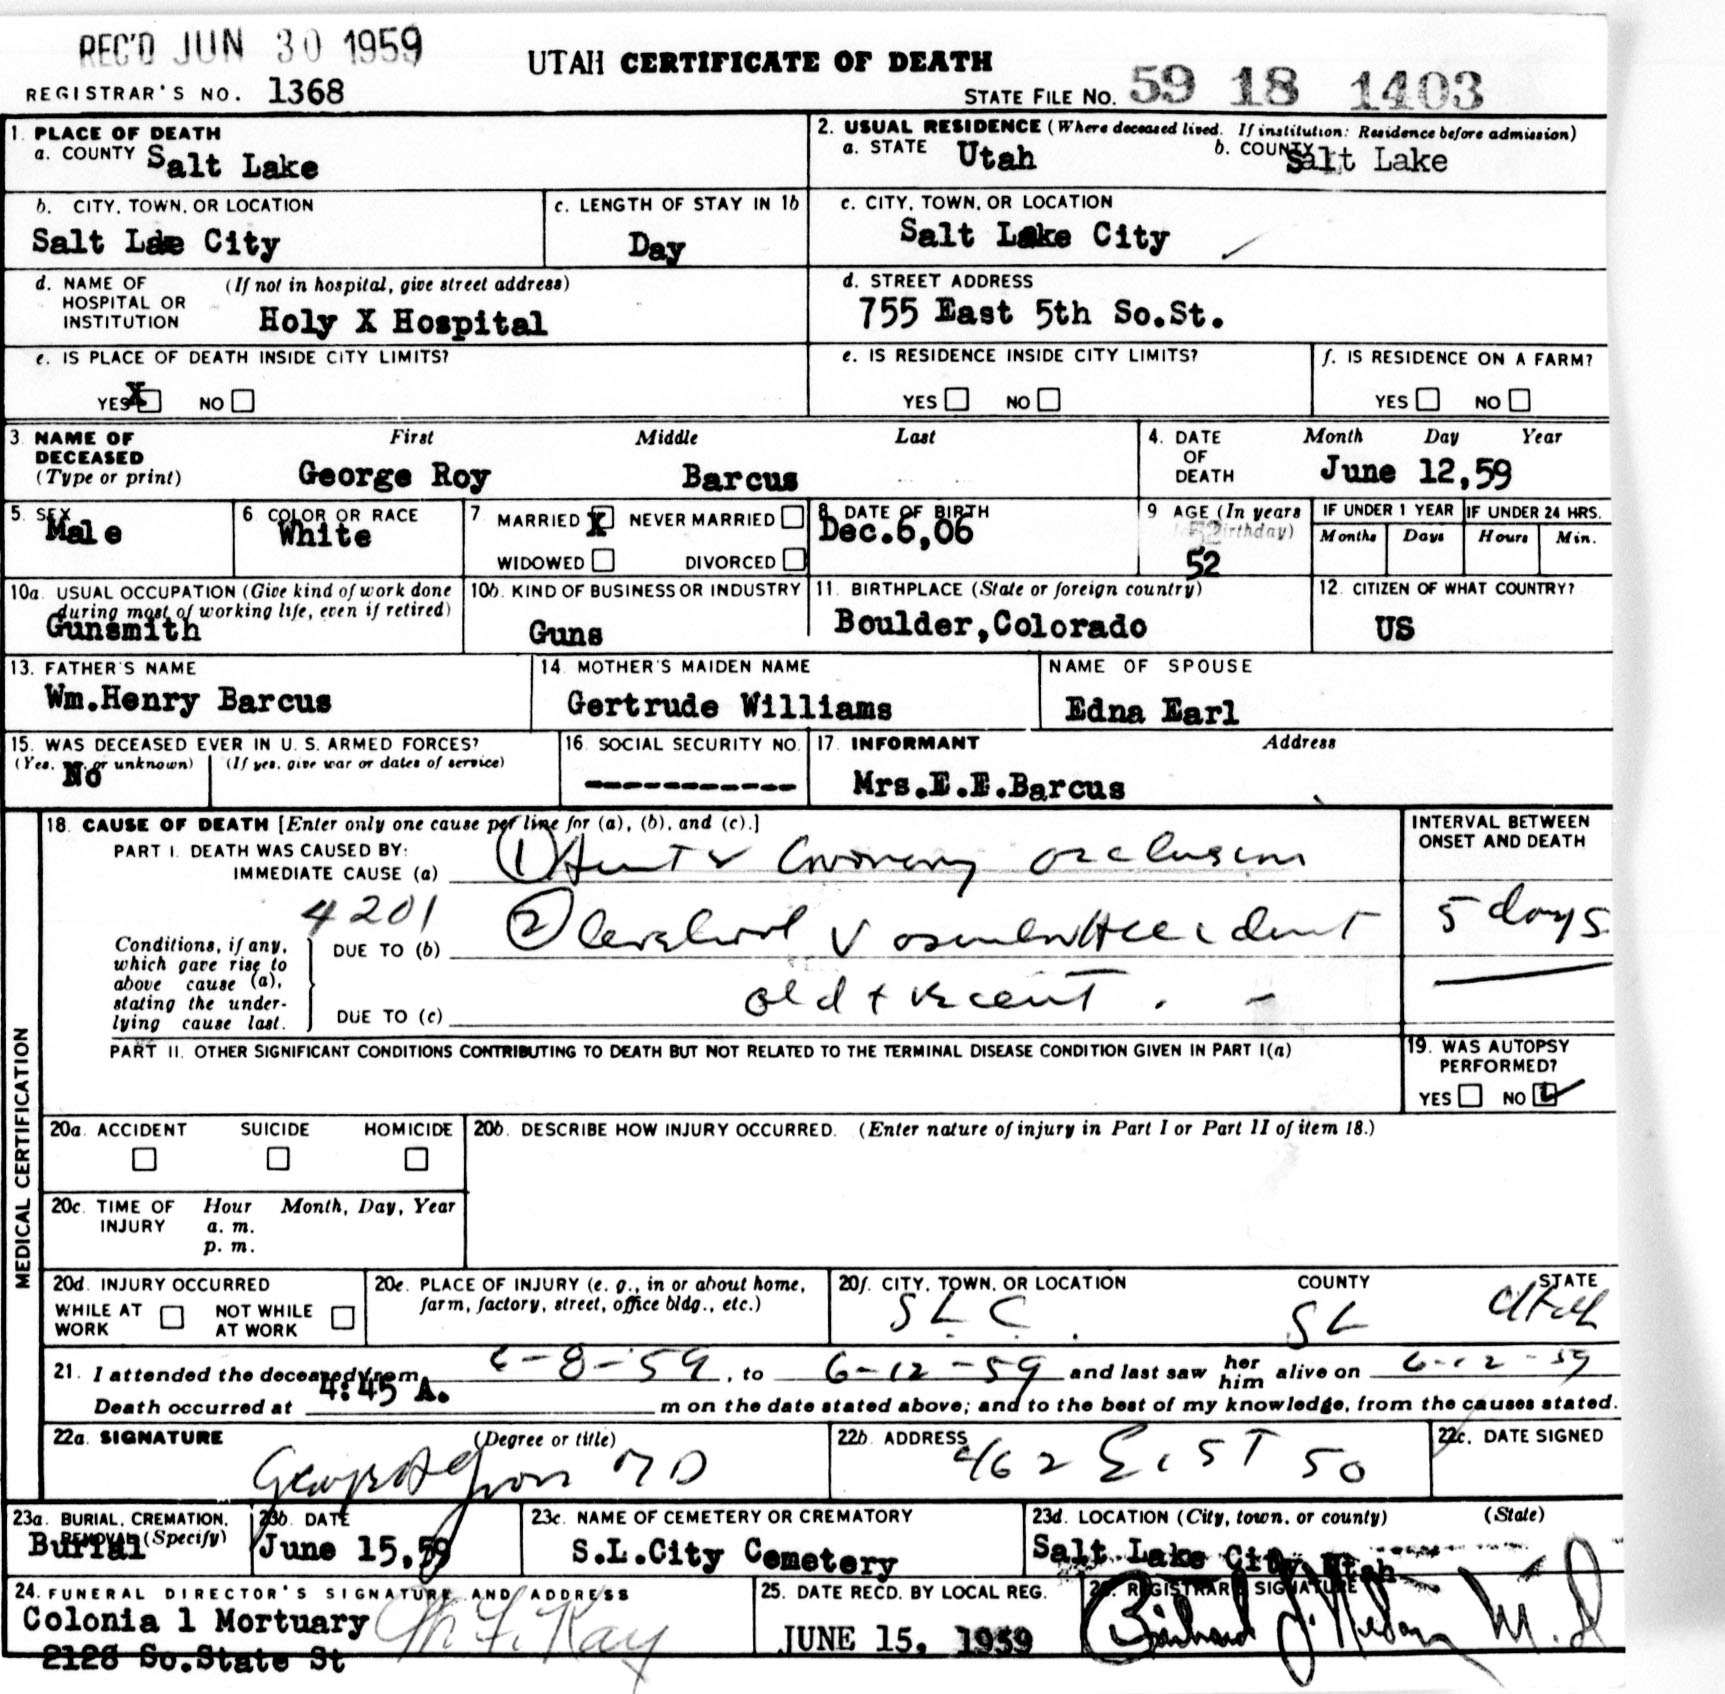 REC'D JUN 30 1959
UTAH CERTIFICATE OF DEATH
REGISTRAR'S NO. 1368
STATE FILE NO. 59 18 1403
1. PLACE OF DEATH
a. COUNTY Salt Lake
2. USUAL RESIDENCE (Where deceased lived. If institution: Residence before admission)
a. STATE Utah b. COUNTY Salt Lake
b. CITY, TOWN, OR LOCATION
Salt Lake City
c. LENGTH OF STAY IN 1b
Day
c. CITY, TOWN, OR LOCATION
Salt Lake City
d. NAME OF HOSPITAL OR INSTITUTION (If not in hospital, give street address)
Holy X Hospital
d. STREET ADDRESS
755 East 5th So.St.
e. IS PLACE OF DEATH INSIDE CITY LIMITS?
YES X NO
e. IS RESIDENCE INSIDE CITY LIMITS?
YES NO
f. IS RESIDENCE ON A FARM?
YES NO
3. NAME OF DECEASED (Type or print)
First Middle Last
George Roy Barcus
4. DATE OF DEATH
Month Day Year
June 12,59
5. SEX
Male
6 COLOR OR RACE
White
7 MARRIED X NEVER MARRIED
WIDOWED DIVORCED
8. DATE OF BIRTH
Dec.6,06
9 AGE (In years birthday)
52
IF UNDER 1 YEAR
Months Days
IF UNDER 24 HRS.
Hours Min.
10a. USUAL OCCUPATION (Give kind of work done during most of working life, even if retired)
Gunsmith
10b. KIND OF BUSINESS OR INDUSTRY
Guns
11. BIRTHPLACE (State or foreign country)
Boulder,Colorado
12. CITIZEN OF WHAT COUNTRY?
US
13. FATHER'S NAME
Wm.Henry Barcus
14. MOTHER'S MAIDEN NAME
Gertrude Williams
NAME OF SPOUSE
Edna Earl
15. WAS DECEASED EVER IN U. S. ARMED FORCES?
(Yes, no, or unknown) (If yes, give war or dates of service)
No
16. SOCIAL SECURITY NO.
-----------
17. INFORMANT Address
Mrs.E.E.Barcus
MEDICAL CERTIFICATION
18. CAUSE OF DEATH [Enter only one cause per line for (a), (b), and (c).]
INTERVAL BETWEEN ONSET AND DEATH
PART I. DEATH WAS CAUSED BY:
IMMEDIATE CAUSE (a) (1) Acute Coronary occlusion
4201
Conditions, if any, which gave rise to above cause (a), stating the underlying cause last.
DUE TO (b) (2) Cerebral Vascular Accident
5 days
DUE TO (c) old + recent.
PART II. OTHER SIGNIFICANT CONDITIONS CONTRIBUTING TO DEATH BUT NOT RELATED TO THE TERMINAL DISEASE CONDITION GIVEN IN PART I(a)
19. WAS AUTOPSY PERFORMED?
YES NO ✓
20a. ACCIDENT SUICIDE HOMICIDE
20b. DESCRIBE HOW INJURY OCCURRED. (Enter nature of injury in Part I or Part II of item 18.)
20c. TIME OF INJURY Hour Month, Day, Year
a. m.
p. m.
20d. INJURY OCCURRED
WHILE AT WORK NOT WHILE AT WORK
20e. PLACE OF INJURY (e. g., in or about home, farm, factory, street, office bldg., etc.)
20f. CITY, TOWN, OR LOCATION COUNTY STATE
SLC SL Utah
21. I attended the deceased from 6-8-59, to 6-12-59 and last saw her him alive on 6-12-59
Death occurred at 4:45 A. m on the date stated above; and to the best of my knowledge, from the causes stated.
22a. SIGNATURE (Degree or title)
MD
22b. ADDRESS
462 East So
22c. DATE SIGNED
23a. BURIAL, CREMATION, REMOVAL (Specify)
Burial
23b. DATE
June 15,59
23c. NAME OF CEMETERY OR CREMATORY
S.L.City Cemetery
23d. LOCATION (City, town, or county) (State)
Salt Lake City, Utah
24. FUNERAL DIRECTOR'S SIGNATURE AND ADDRESS
Colonia l Mortuary
2128 So.State St
25. DATE RECD. BY LOCAL REG.
JUNE 15, 1959
26. REGISTRAR'S SIGNATURE
M.D